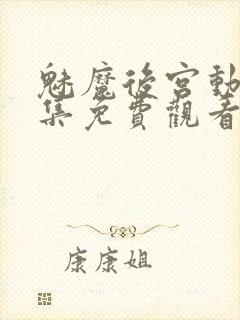 魅魔後宮動
集免費觀看
康康姐